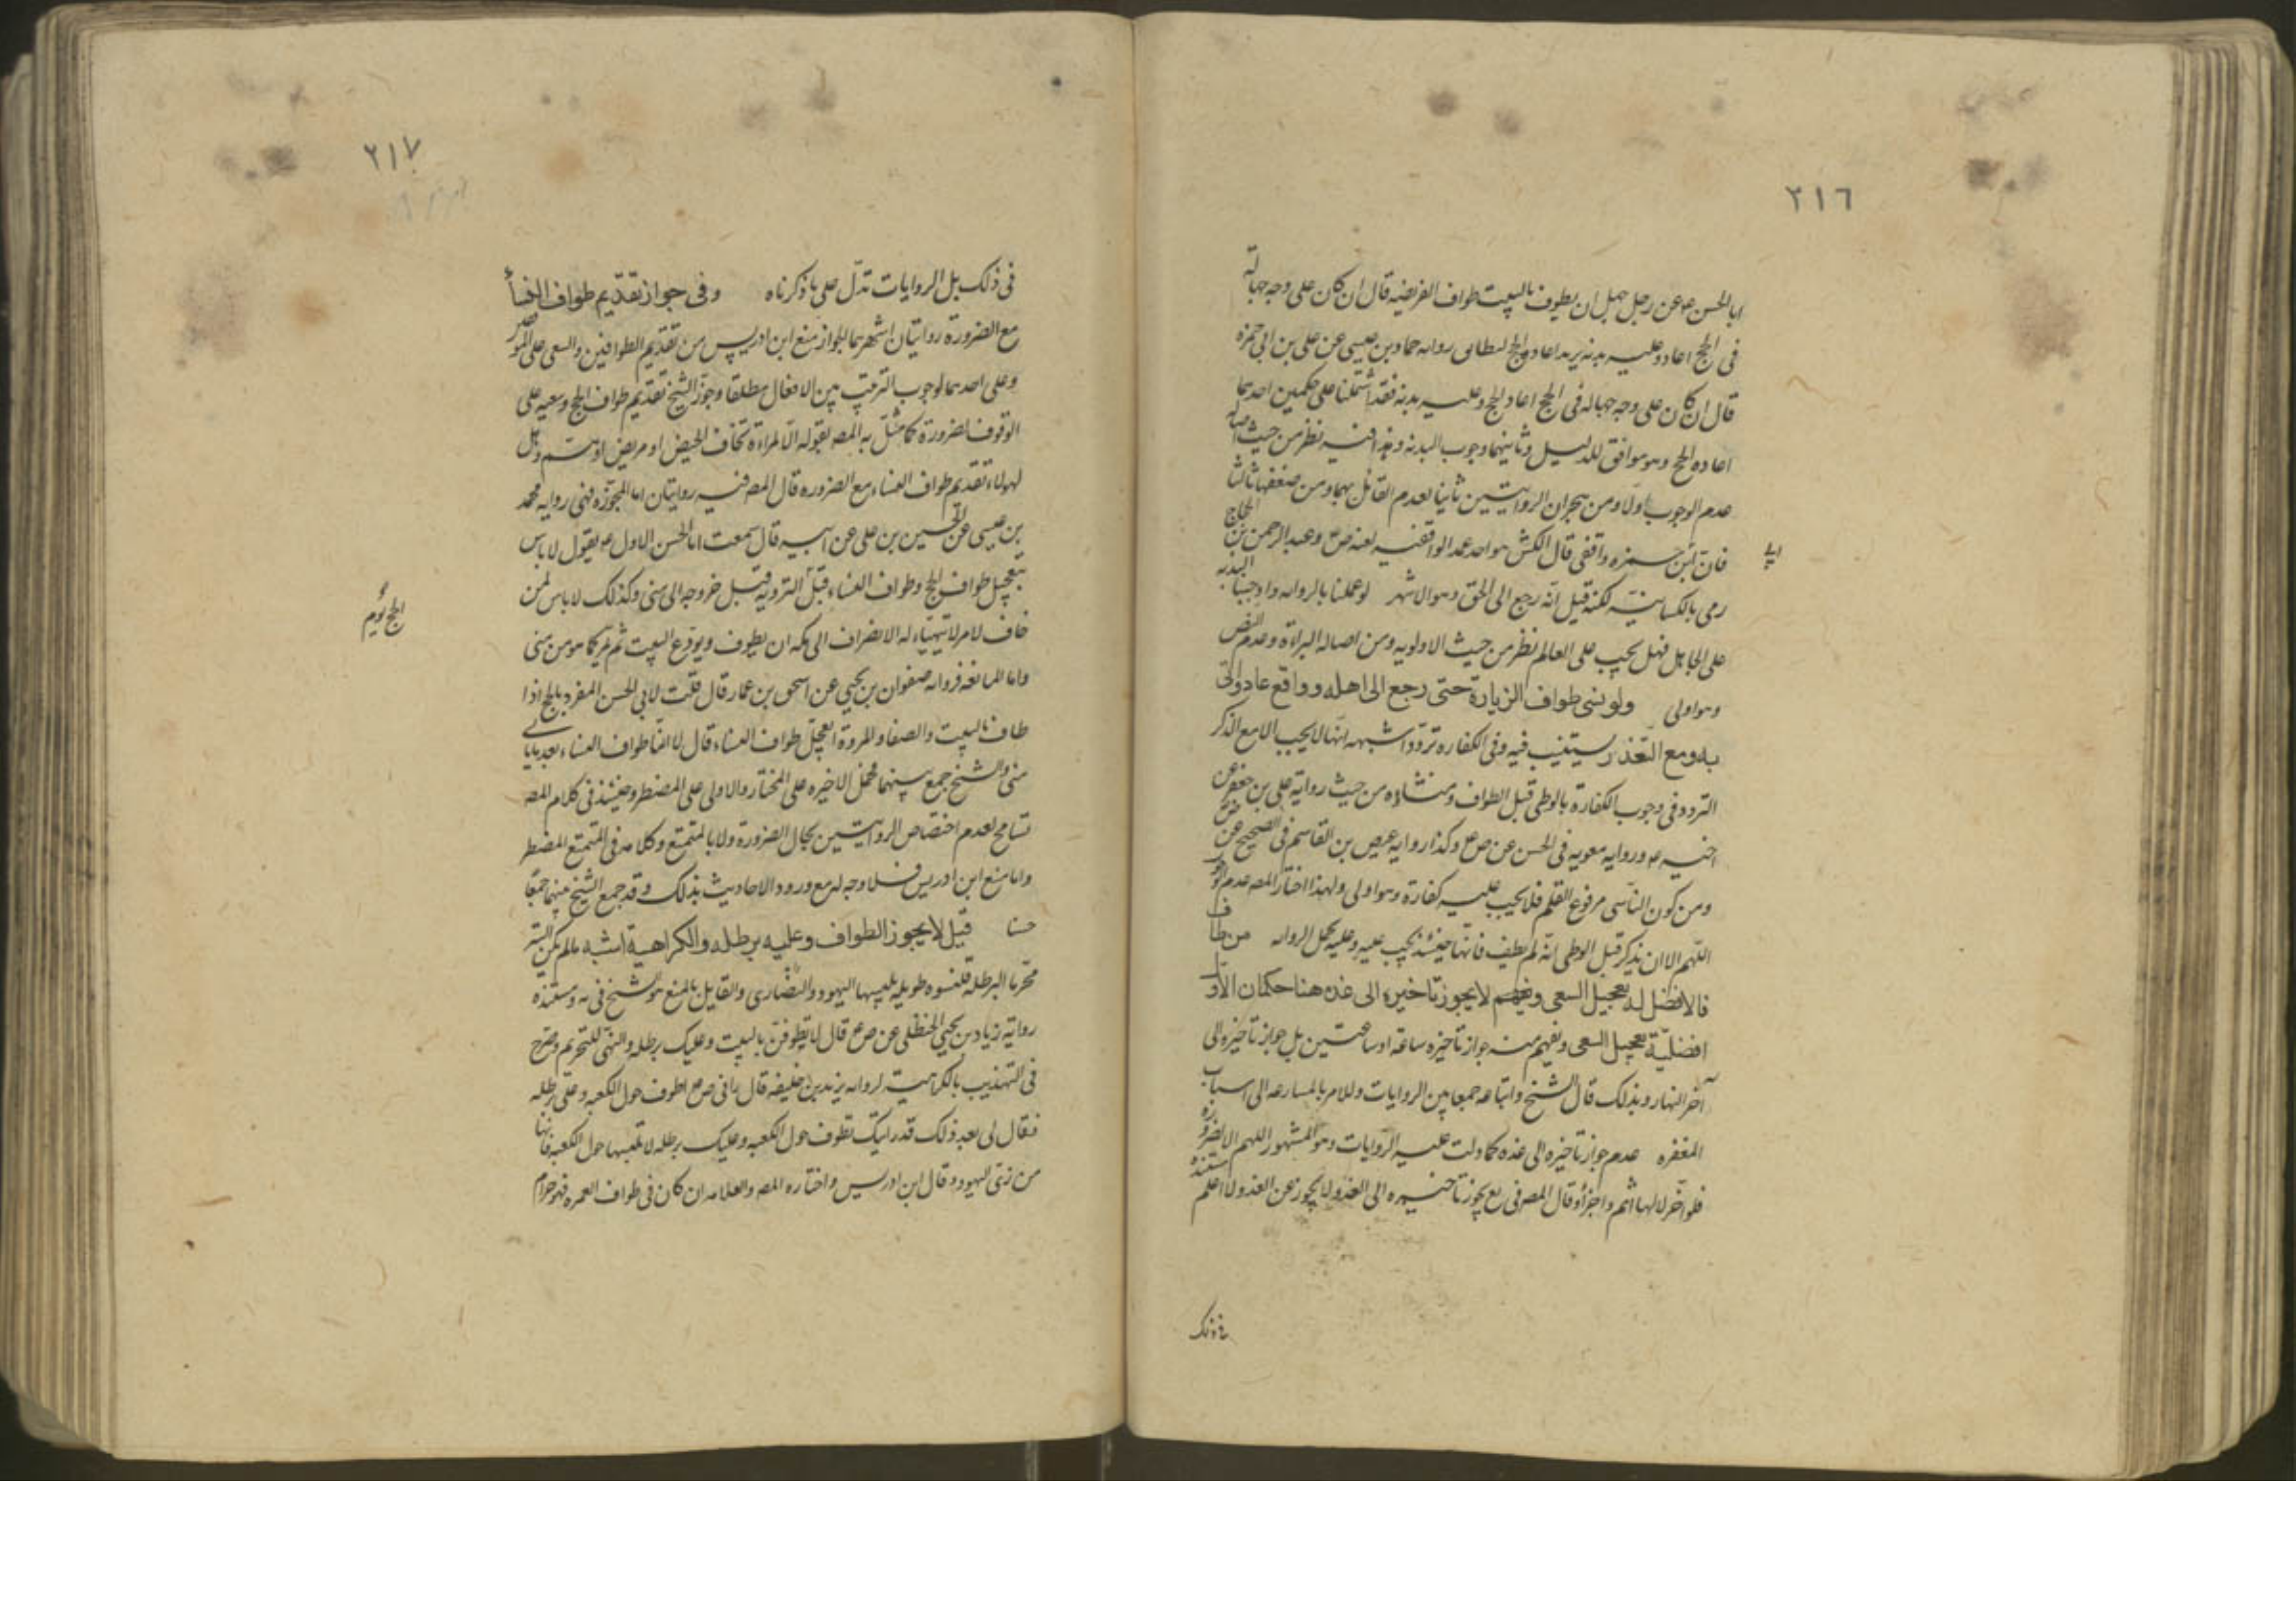 ٢١٦
ابا الحسن ع عن رجل جهل ان يطوف بالبيت طواف الفريضه قال ان كان على وجه جهالة
فى الحج اعاد وعليه بدنه يريد اعادة الحج لبطلانه روايه حماد بن عيسى عن على بن ابى حمزه
قال ان كان على وجه جهاله فى الحج اعاد الحج وعليه بدنه فقد اشتملتا على حكمين احدهما
اعاده الحج وهو موافق للدليل وثانيهما وجوب البدنه وهذا فيه نظر من حيث اصالة
عدم الوجوب اولا ومن هجران الروايتين ثانيا لعدم القائل بهما ومن ضعفها ثالثا
فان ابن حمزه واقفى قال الكش هو احد عمد الواقفيه لعنه ص ع وعبد الرحمن بن الحجاج
رمى بالكسانيّه لكنه قيل انّه رجع الى الحق وهو الاشهر لو عملنا بالروايه واوجبنا البدنه
على الجاهل فهل يجب على العالم نظر من حيث الاولويه ومن اصاله البراءة وعدم النص
وهو اولى ولو نسى طواف الزيارة حتى رجع الى اهله وواقع عاد واتى
به ومع التعذر يستنيب فيه وفى الكفاره تردد اشبهه انها لا يجب الا مع الذكر
التردد فى وجوب الكفارة بالوطى قبل الطواف ومنشاؤه من حيث رواية على بن جعفر عن
اخيه ع وروايه معويه فى الحسن عن ص ع وكذا روايه عيص بن القاسم فى الصحيح عن ص ع
ومن كون الناسى مرفوع القلم فلا يجب عليه كفارة وهو اولى ولهذا اختار المصه عدم الوجوب
اللهم الا ان يذكر قبل الوطى انه لم يطف فانها حينئذ يجب عليه وعليه يحمل الروايه من طاف
فالافضل له تعجيل السعى ولا يجوز تاخيره الى غده هنا حكمان الاوّل
افضليّة تعجيل السعى ويفهم منه جواز تاخيره ساعة او ساعتين بل جواز تاخيره الى
آخر النهار وبذلك قال الشيخ واتباعه جمعا بين الروايات وللامر بالمسارعه الى اسباب
المغفره عدم جواز تاخيره الى غده كما دلت عليه الروايات وهو المشهور اللهم الا لضرورة
فلو اخّر لا لها اثم واجزأ وقال المصه فى يع يجوز تاخيره الى الغد ولا يجوز عن الغد ولا اعلم مستنده
فى ذلك
٢١٧
فى ذلك بل الروايات تدلّ على ما ذكرناه وفى جواز تقديم طواف النساء
مع الضرورة روايتان اشهرهما الجواز منع ابن ادريس من تقديم الطوافين والسعى على الموقفين
وعلى احدهما لوجوب الترتيب بين الافعال مطلقا وجوّز الشيخ تقديم طواف الحج وسعيه على
الوقوف لضرورة كما مثّل به المصه بقوله الا لمراءة تخاف الحيض او مريض او هم وهل
لهولاء تقديم طواف النساء مع الضروره قال المصه فيه روايتان اما المجوّزه فهى روايه محمد
بن عيسى عن الحسين بن على عن ابيه قال سمعت ابا الحسن الاول ع يقول لا باس
بتعجيل طواف الحج وطواف النساء قبل التروية قبل خروجه الى منى وكذلك لا باس لمن
الحج يوم
خاف لامر لا يتهيّاء له الانصراف الى مكه ان يطوف ويودّع البيت ثم يمر كما هو من منى
واما المانعه فروايه صفوان بن يحيى عن اسحق بن عمار قال قلت لابى الحسن المفرد بالحج اذا
طاف بالبيت والصفا والمروة ايعجل طواف النساء قال لا انما طواف النساء بعد ما ياتى
منى والشيخ جمع بينهما فحمل الاخيره على المختار والاولى على المضطر وحينئذ فى كلام المصه
تسامح لعدم اختصاص الروايتين بحال الضرورة ولا بالمتمتع وكلامه فى المتمتع المضطر
واما منع ابن ادريس فلا وجه له مع ورود الاحاديث بذلك وقد جمع الشيخ بينهما جمعًا
حسنا قيل لا يجوز الطواف وعليه برطله والكراهية اشبه مالم يكن الستر
محرّما البرطله قلنسوه طويله يلبسها اليهود والنصارى والقايل بالمنع هو الشيخ فى يه ومستنده
رواية زياد بن يحيى الحنظلى عن ص ع قال لا تطوفن بالبيت وعليك برطله والنهى للتحريم وصرح
فى التهذيب بالكراهيت لروايه يزيد بن خليفه قال رانى ص ع اطوف حول الكعبه وعلىّ برطله
فقال لى بعد ذلك قد رايتك تطوف حول الكعبه وعليك برطله لا تلبسها حول الكعبه فانها
من زىّ اليهود وقال ابن ادريس واختاره المصه والعلامه ان كان فى طواف العمره فهو حرام